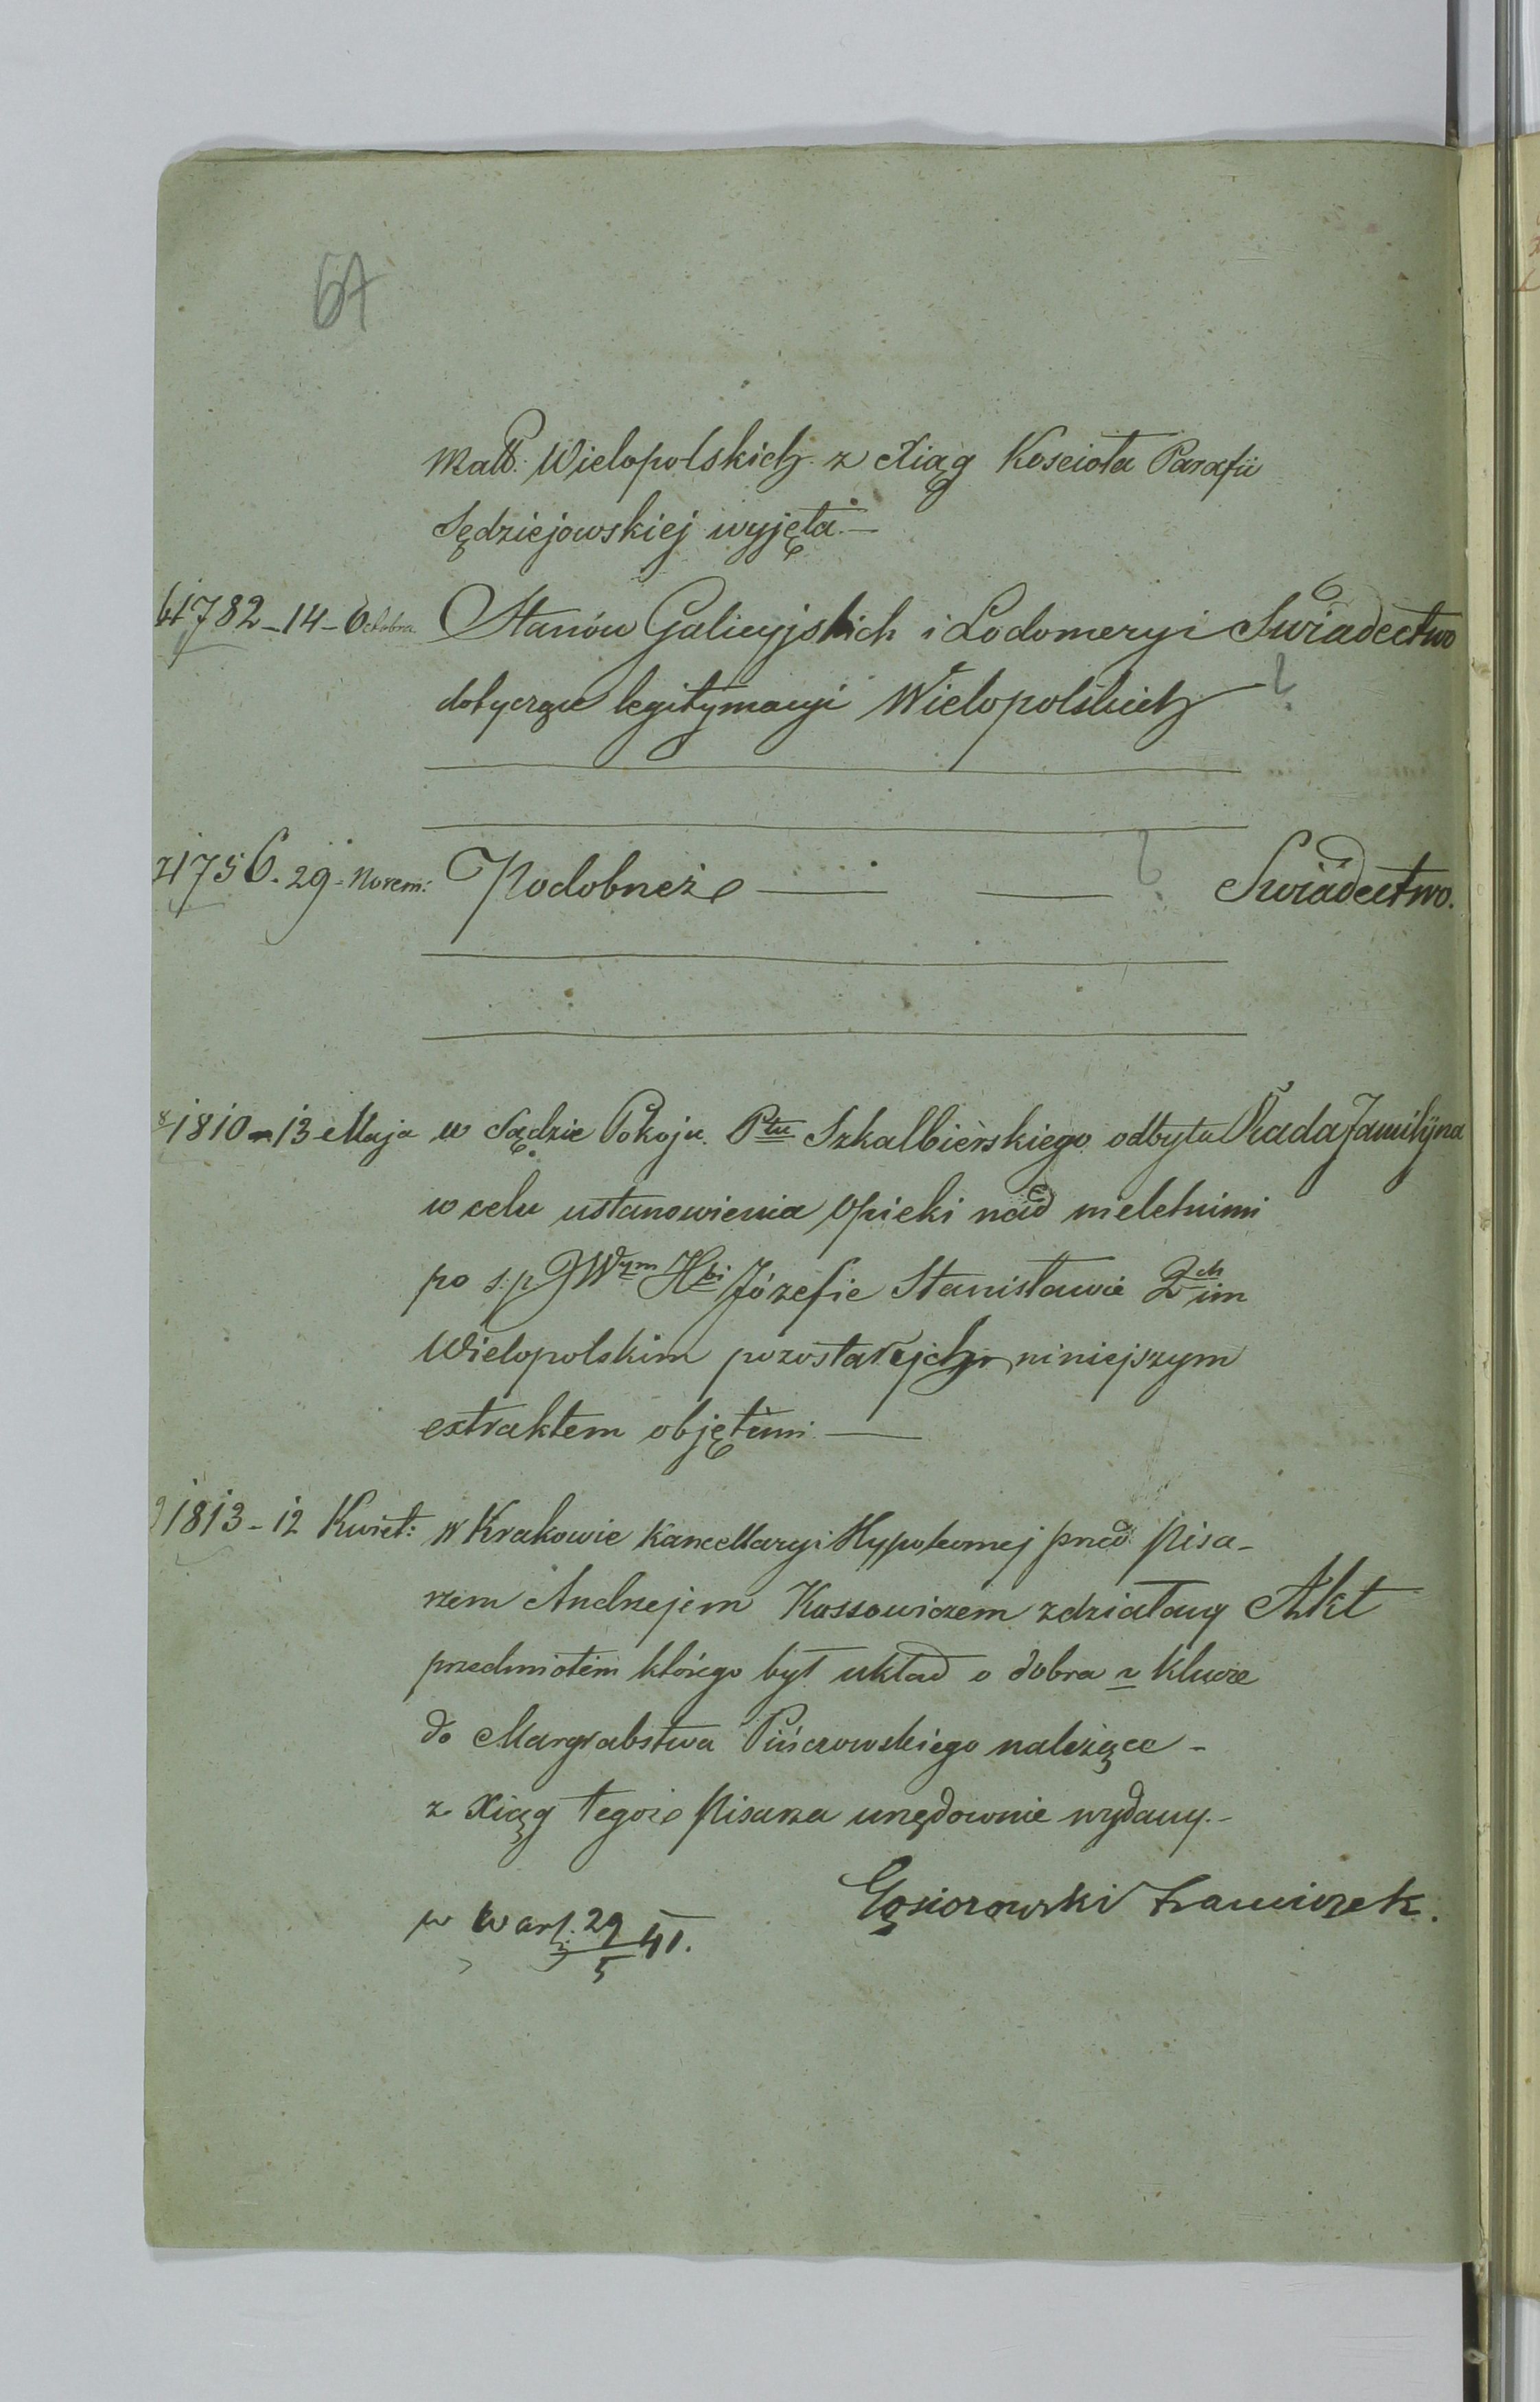 67
Małż: Wielopolskich z Xiąg Kościoła Parafii
Sędziejowskiej wyjęta.—
6 1782-14-Octobra Stanów Galicyjskich i Lodomeryi Swiadectwo
dotyczące legitymacyi Wielopolskich ?
7 1756.29-Novem: Podobneże — — ? Swiadectwo.
8 1810-13 Maja w Sądzie Pokoju Ptu Szkalbierskiego odbyta Rada Familijna
w celu ustanowienia Opieki nad nieletnimi
po s:p JWym Hbi Józefie Stanisławie 2ch im
Wielopolskim pozostałych niniejszym
extraktem objętemi.—
9 1813-12 Kwiet: w Krakowie Kancellaryi Hypotecznej przed Pisa-
rzem Andrzejem Kossowiczem zdziałany Akt
przedmiotem którego był układ o dobra i Klucze
do Margrabstwa Pińczowskiego należące-
z Xiąg tegoże Pisarza urzędownie wydany.-
w Warsz. 29/5 41. Gąsiorowski Franciszek.